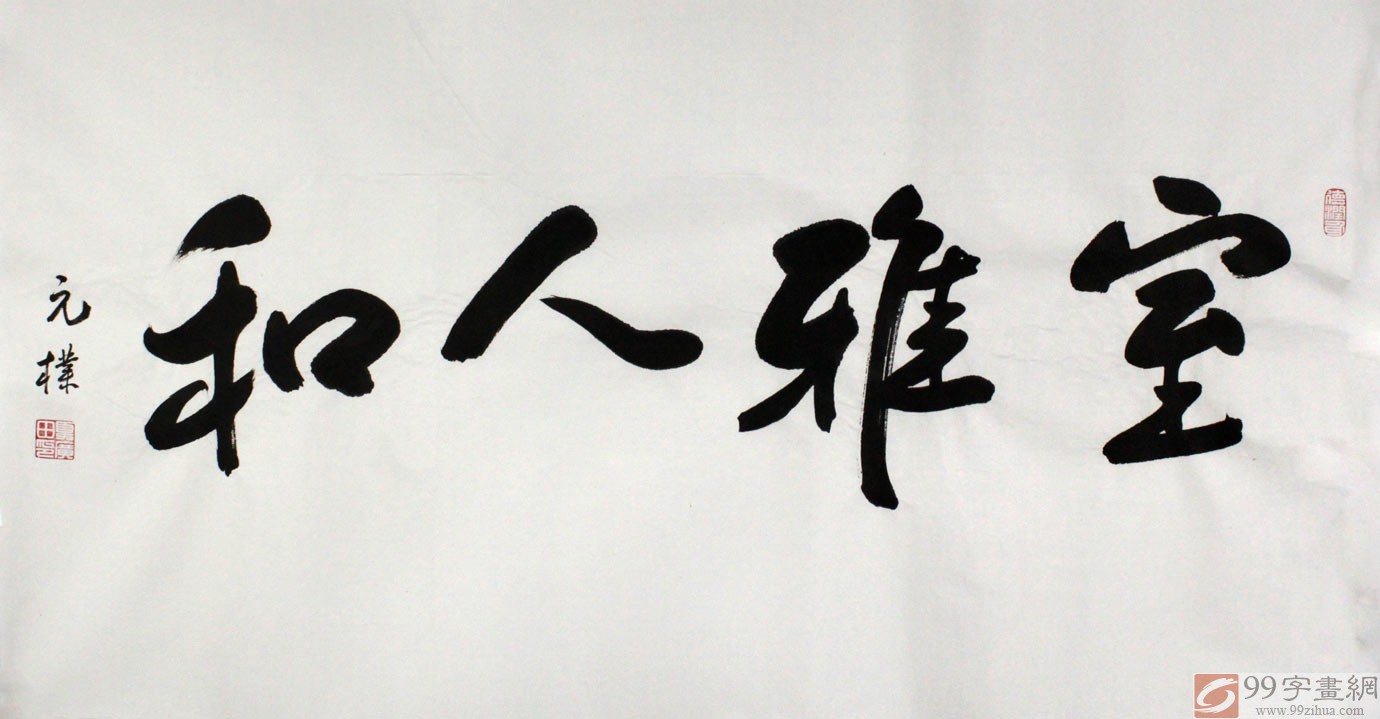 室雅人和
元樸
99字畫網
www.99zihua.com